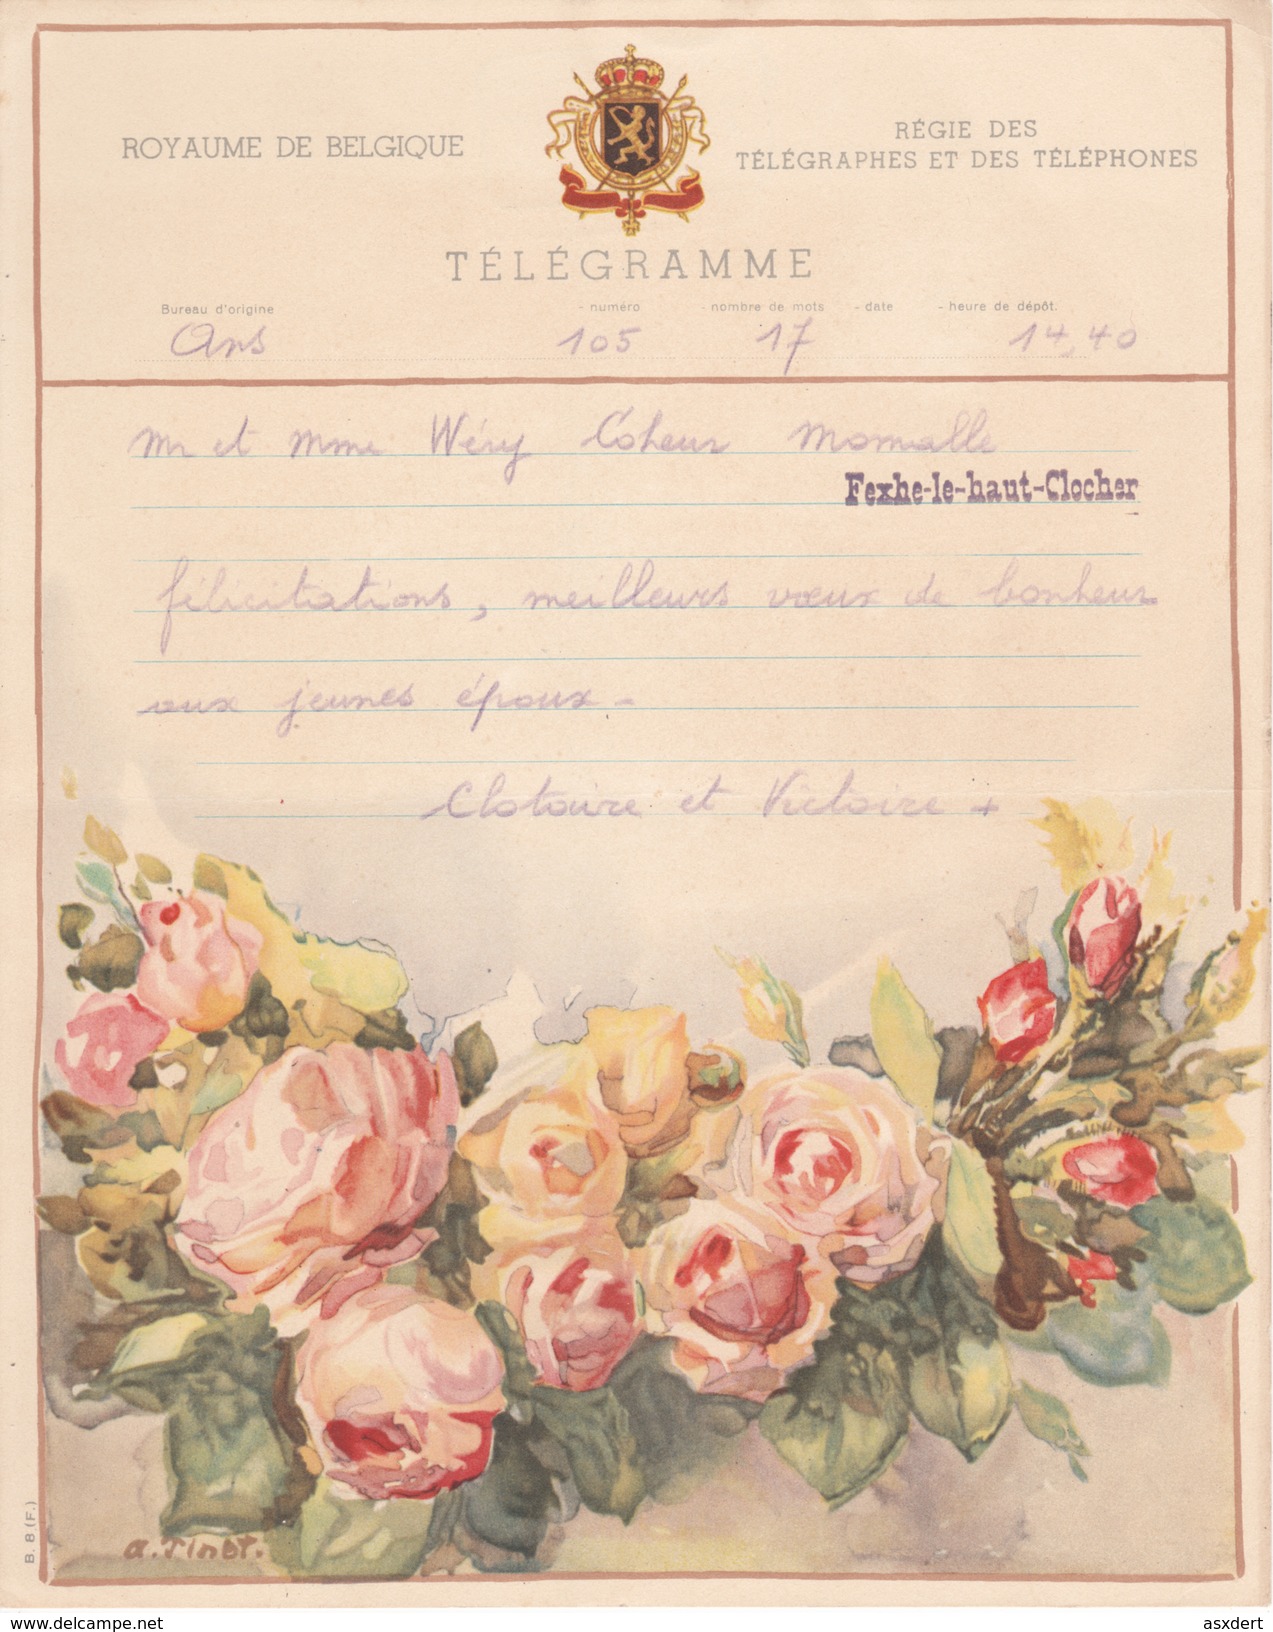 ROYAUME DE BELGIQUE
RÉGIE DES
TÉLÉGRAPHES ET DES TÉLÉPHONES
TÉLÉGRAMME
Bureau d'origine - numéro - nombre de mots - date - heure de dépôt.
Ans 105 17 14,40
Mr et Mme Wéry Coheur Momalle
Fexhe-le-haut-Clocher
félicitations, meilleurs vœux de bonheur
aux jeunes époux -
Clotaire et Victoire +
B. 8 (F.)
delcampe.net
asxdert